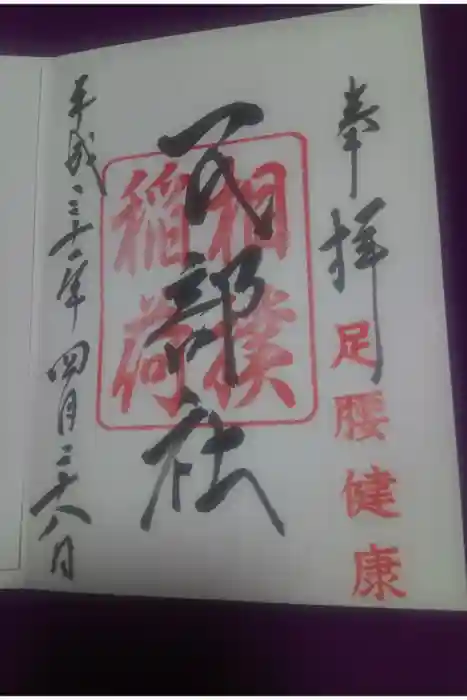 奉拝
足腰健康
民部社
相撲
稲荷
平成三十一年四月二十八日